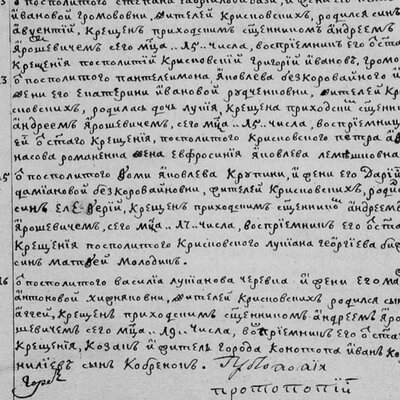 ѡ посполитого степана гаврилова
ївановой громововни, жителей Крисковскихъ, родился синъ
Авѹентїй, Крещенъ приходскимъ сщенникомъ андреемъ
Ярошевичемъ сего мца 15 числа, воспрїемникъ его ѡ стаго
Крещенїя посполитїй Крисковскїй григорїй ївановъ громо
13 ѡ посполитого пантелимона яковлева безкоровайного й
жени его екатерини ївановой рѹдченковни, жителей Кри
сковскихъ, родилась дочь лѹкїя, Крещена приходским сщенни
андреемъ ярошевичемъ, сего мца 15 числа, воспрїемниц
ей ѡ стаго Крещенїя, посполитого Крисковского петра а
насова романенка жена евфросинїя яковлева лемешковна
15 ѡ посполитого Ѳоми яковлева Крупини, й жени его дарїй
дамїановой безкоровайновни, жителей Крисковскихъ, роди
синъ елеѵѳерїй, Крещенъ приходскимъ сщенником андреем
ярошевичемъ, сего мца 17 числа, воспрїемникъ его ѡ стаго
Крещенїя посполитого Крисковского лукїана георгїева
синъ матѳей молодикъ.
16 ѡ посполитого василїа лукїанова черевка й жени его ма
антоновой хижняковни, жителей Крисковскихъ родился сынъ
аггей, Крещенъ приходскимъ сщенникомъ андреемъ яро
шевичемъ сего мца 19 числа, воспрїемникъ его ѡ стаго
Крещенїя, Козакъ й житель города Конотопа їванъ Кор
нилїевъ сынъ Кобренокъ.
протопопїй